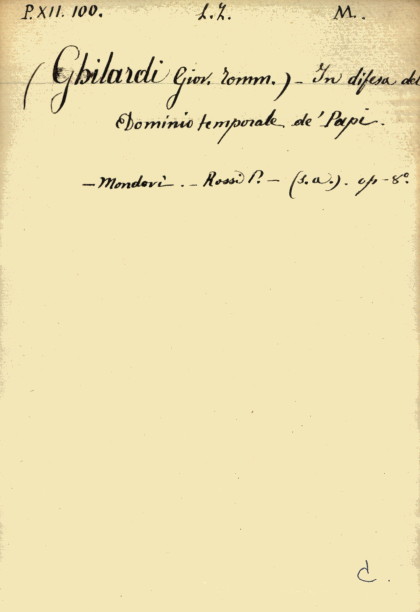 P. XII. 100. L. L. M.
(Ghilardi Giov. Tomm.) - In difesa del
Dominio temporale de' Papi.
- Mondovì. - Rossi P. - (s. a.). op - 8°
C.